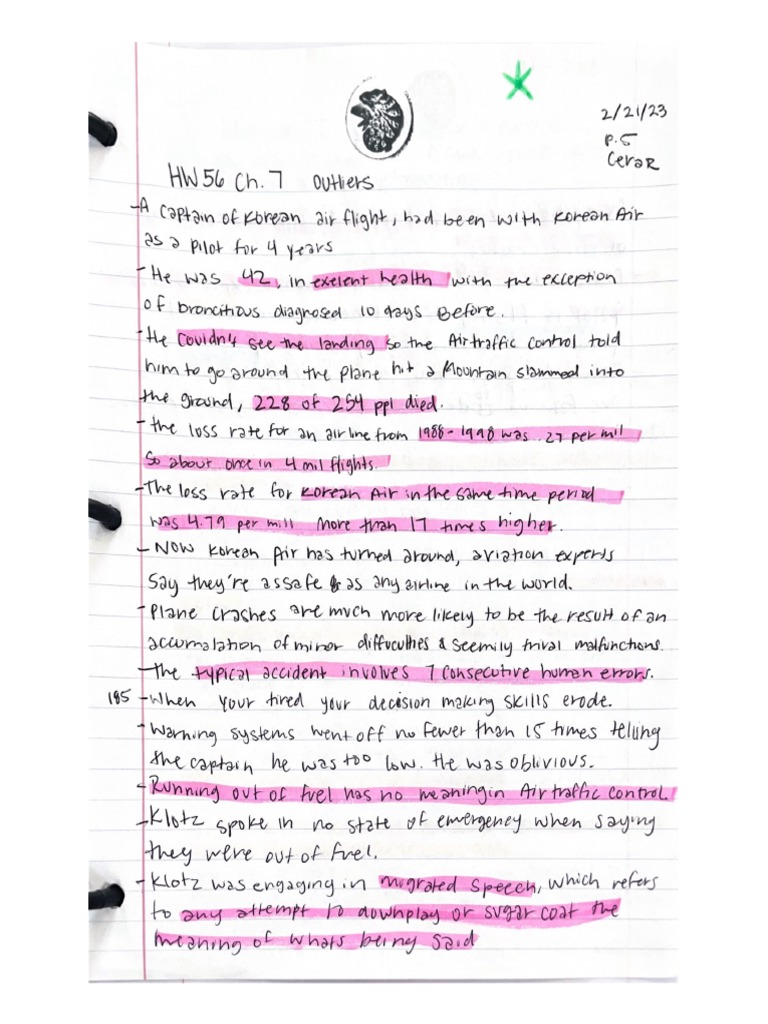 2/21/23
P.5
CeraR
HW56 Ch. 7 Outliers
-A captain of Korean air flight, had been with Korean Air
as a pilot for 4 years
-He was 42, in exelent health with the exception
of broncitious diagnosed 10 days Before.
-He Couldn't see the landing so the Air traffic control told
him to go around the plane hit a Mountain slammed into
the ground, 228 of 254 ppl died.
-the loss rate for an airline from 1988-1998 was .27 per mil
So about once in 4 mil flights.
-The loss rate for Korean Air in the same time period
was 4.79 per mill more than 17 times higher.
-Now Korean Air has turned around, aviation experts
Say they're as safe as any airline in the world.
-Plane crashes are much more likely to be the result of an
accumalation of minor diffuculties & seemily trival malfunctions.
-The typical accident involves 7 consecutive human errors.
185 -When your tired your decision making skills erode.
-Warning systems went off no fewer than 15 times telling
the captain he was too low. He was oblivious.
-Running out of fuel has no meaning in Air traffic control.
-Klotz spoke in no state of emergency when saying
they were out of fuel.
-Klotz was engaging in migrated speech, which refers
to any attempt to downplay or sugar coat the
meaning of whats being said